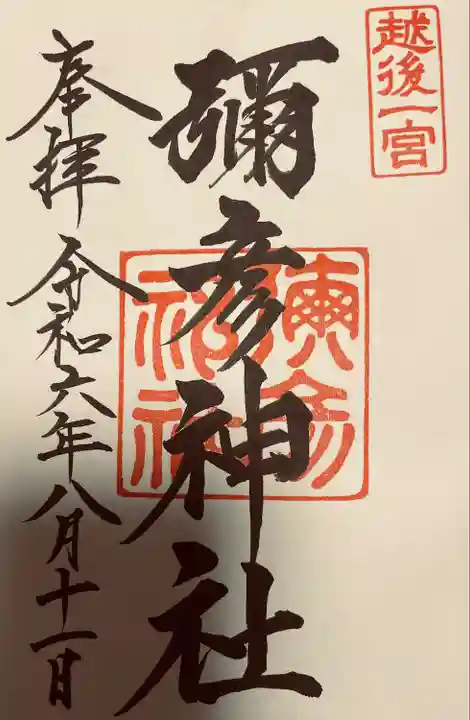 越後一宮
彌彦神社
奉拝 令和六年八月十一日